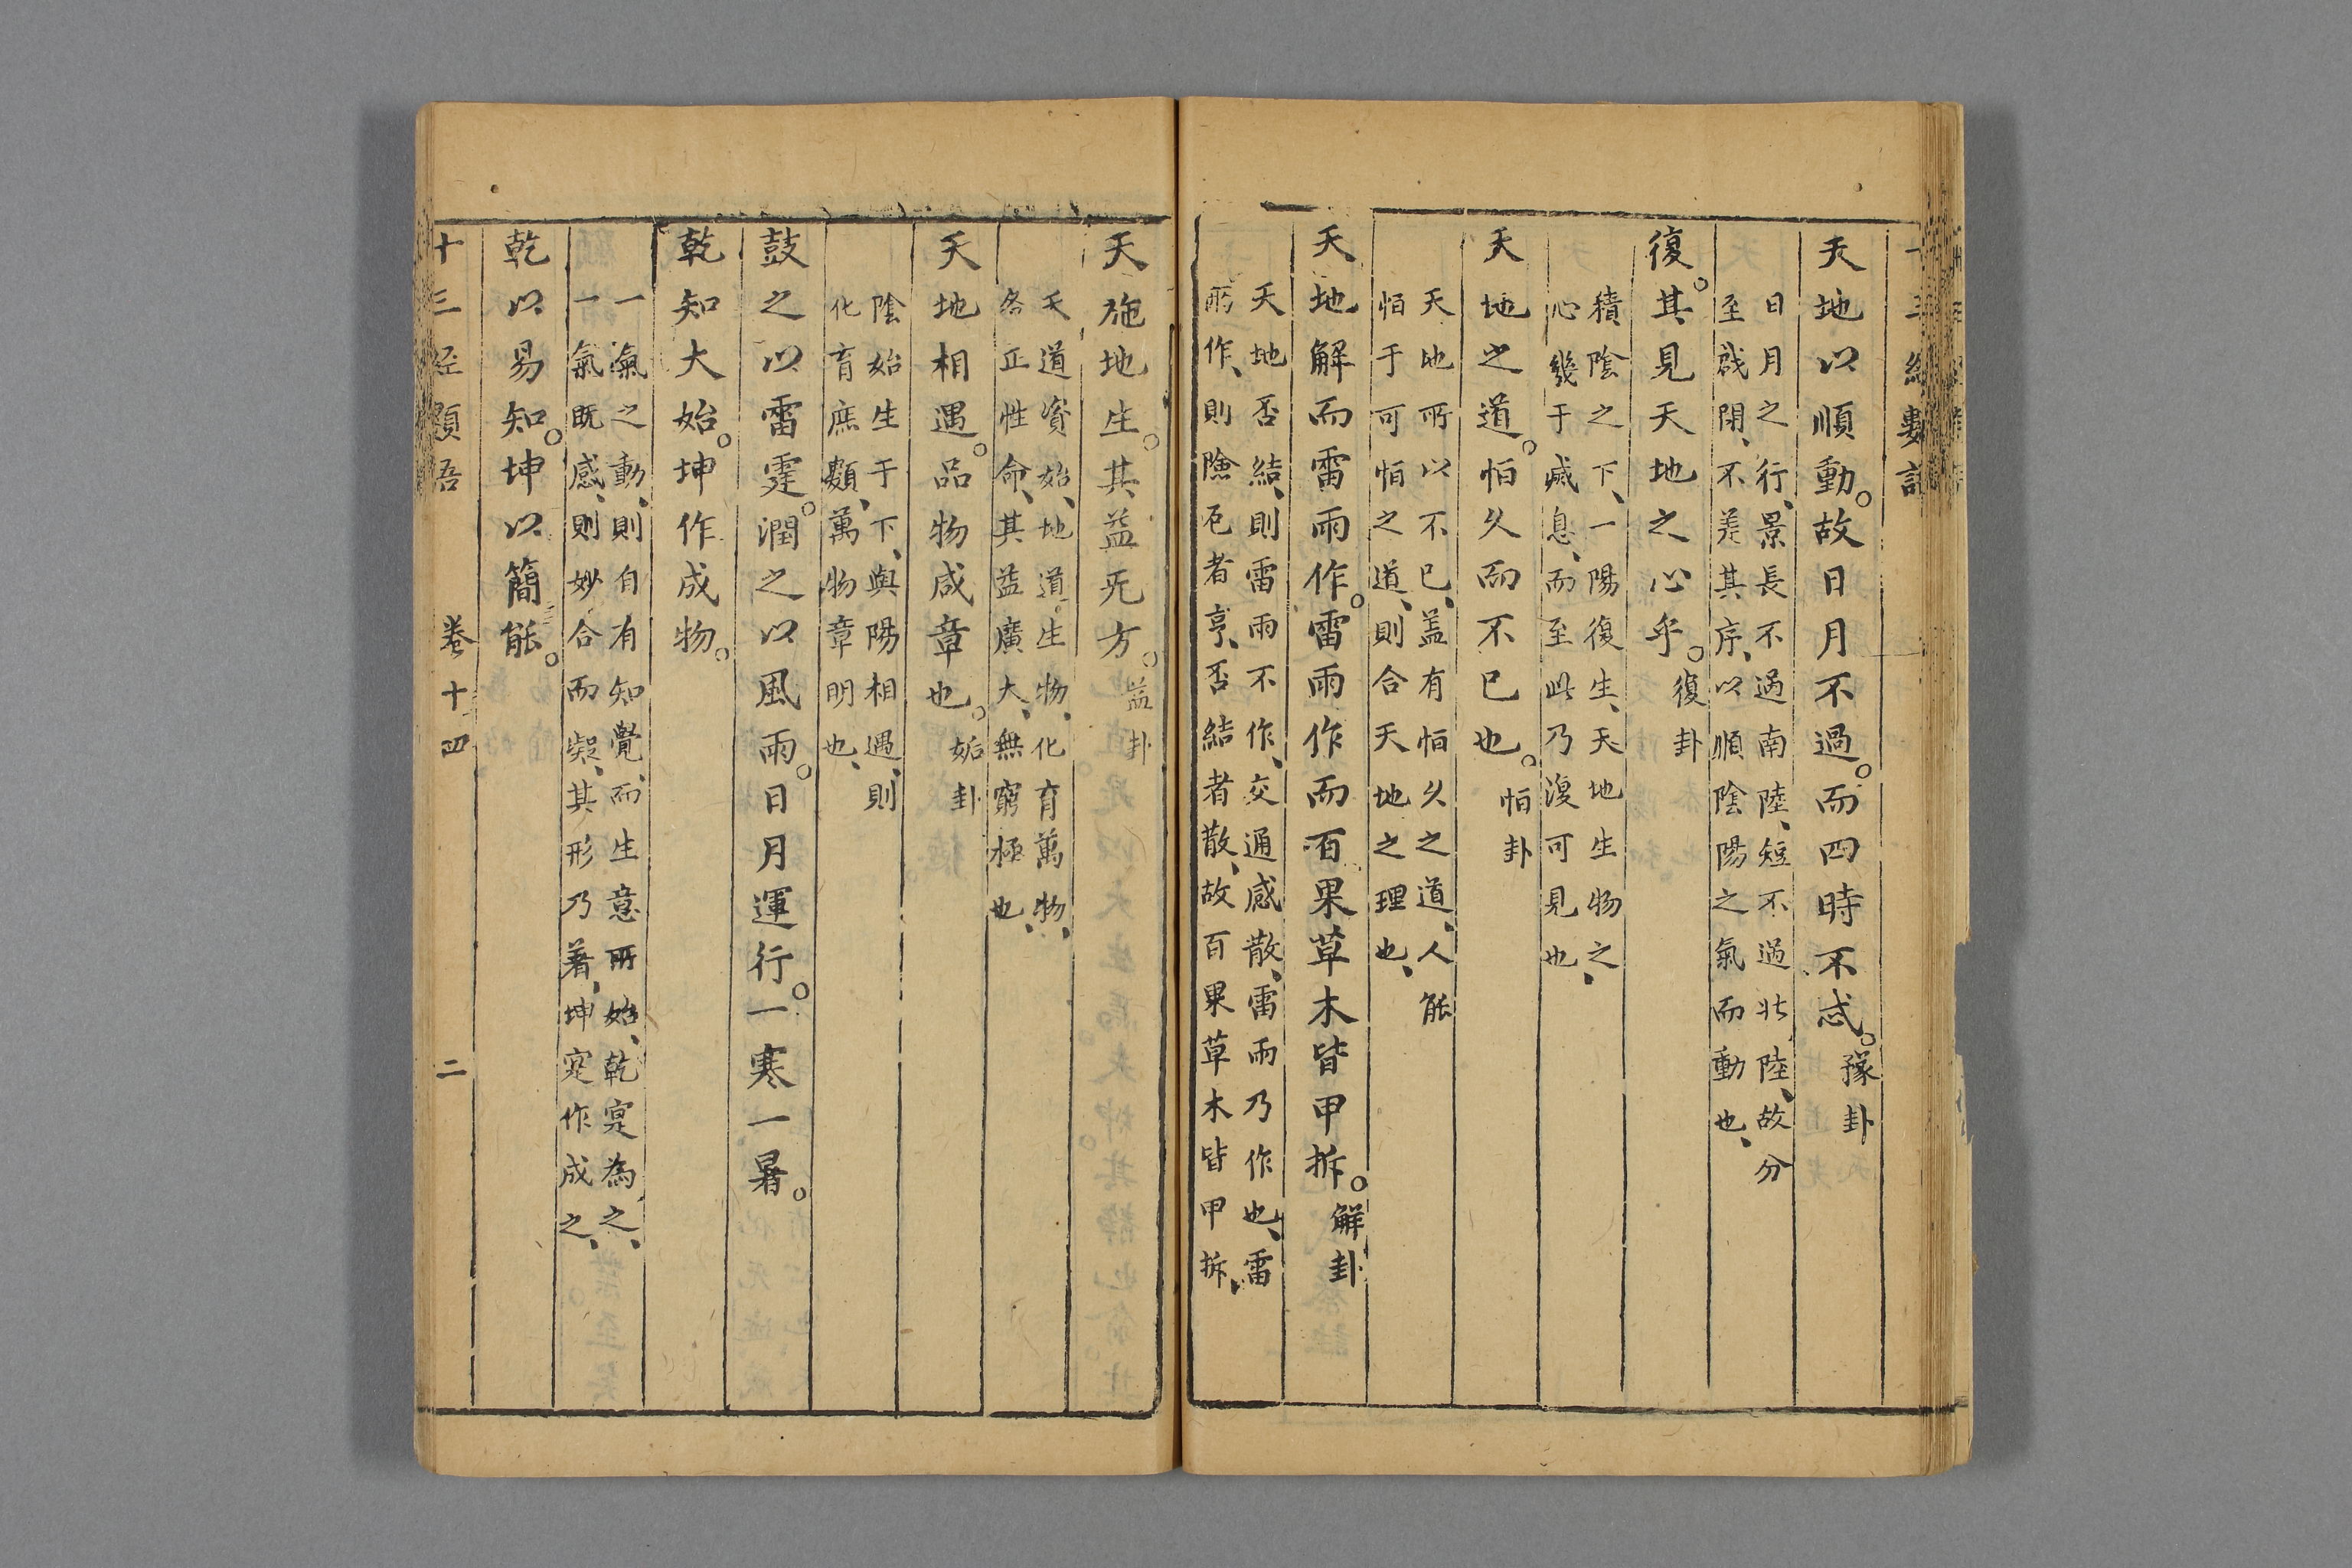 天地以順動。故日月不過。而四時不忒。豫卦
日月之行、景長不過南陸、短不過北陸、故分
至啟閉、不差其序、以順陰陽之氣而動也、
復。其見天地之心乎。復卦
積陰之下、一陽復生、天地生物之、
心幾于滅息、而至此乃復可見也、
天地之道。恒久而不已也。恒卦
天地所以不已、盖有恒久之道、人能
恒于可恒之道、則合天地之理也、
天地解而雷雨作。雷雨作而百果草木皆甲拆。解卦
天地否結、則雷雨不作、交通感散、雷雨乃作也、雷
雨作、則險厄者亨、否結者散、故百果草木皆甲拆、
天施地生。其益无方。益卦
天道資始、地道生物、化育萬物、
各正性命、其益廣大、無窮極也、
天地相遇。品物咸章也。姤卦
陰始生于下、與陽相遇、則
化育庶類、萬物章明也、
鼓之以雷霆。潤之以風雨。日月運行。一寒一暑。
乾知大始。坤作成物。
一氣之動、則自有知覺、而生意所始、乾寔為之、
一氣既感、則妙合而凝、其形乃著、坤寔作成之、
乾以易知。坤以簡能。
十三經類語 卷十四 二